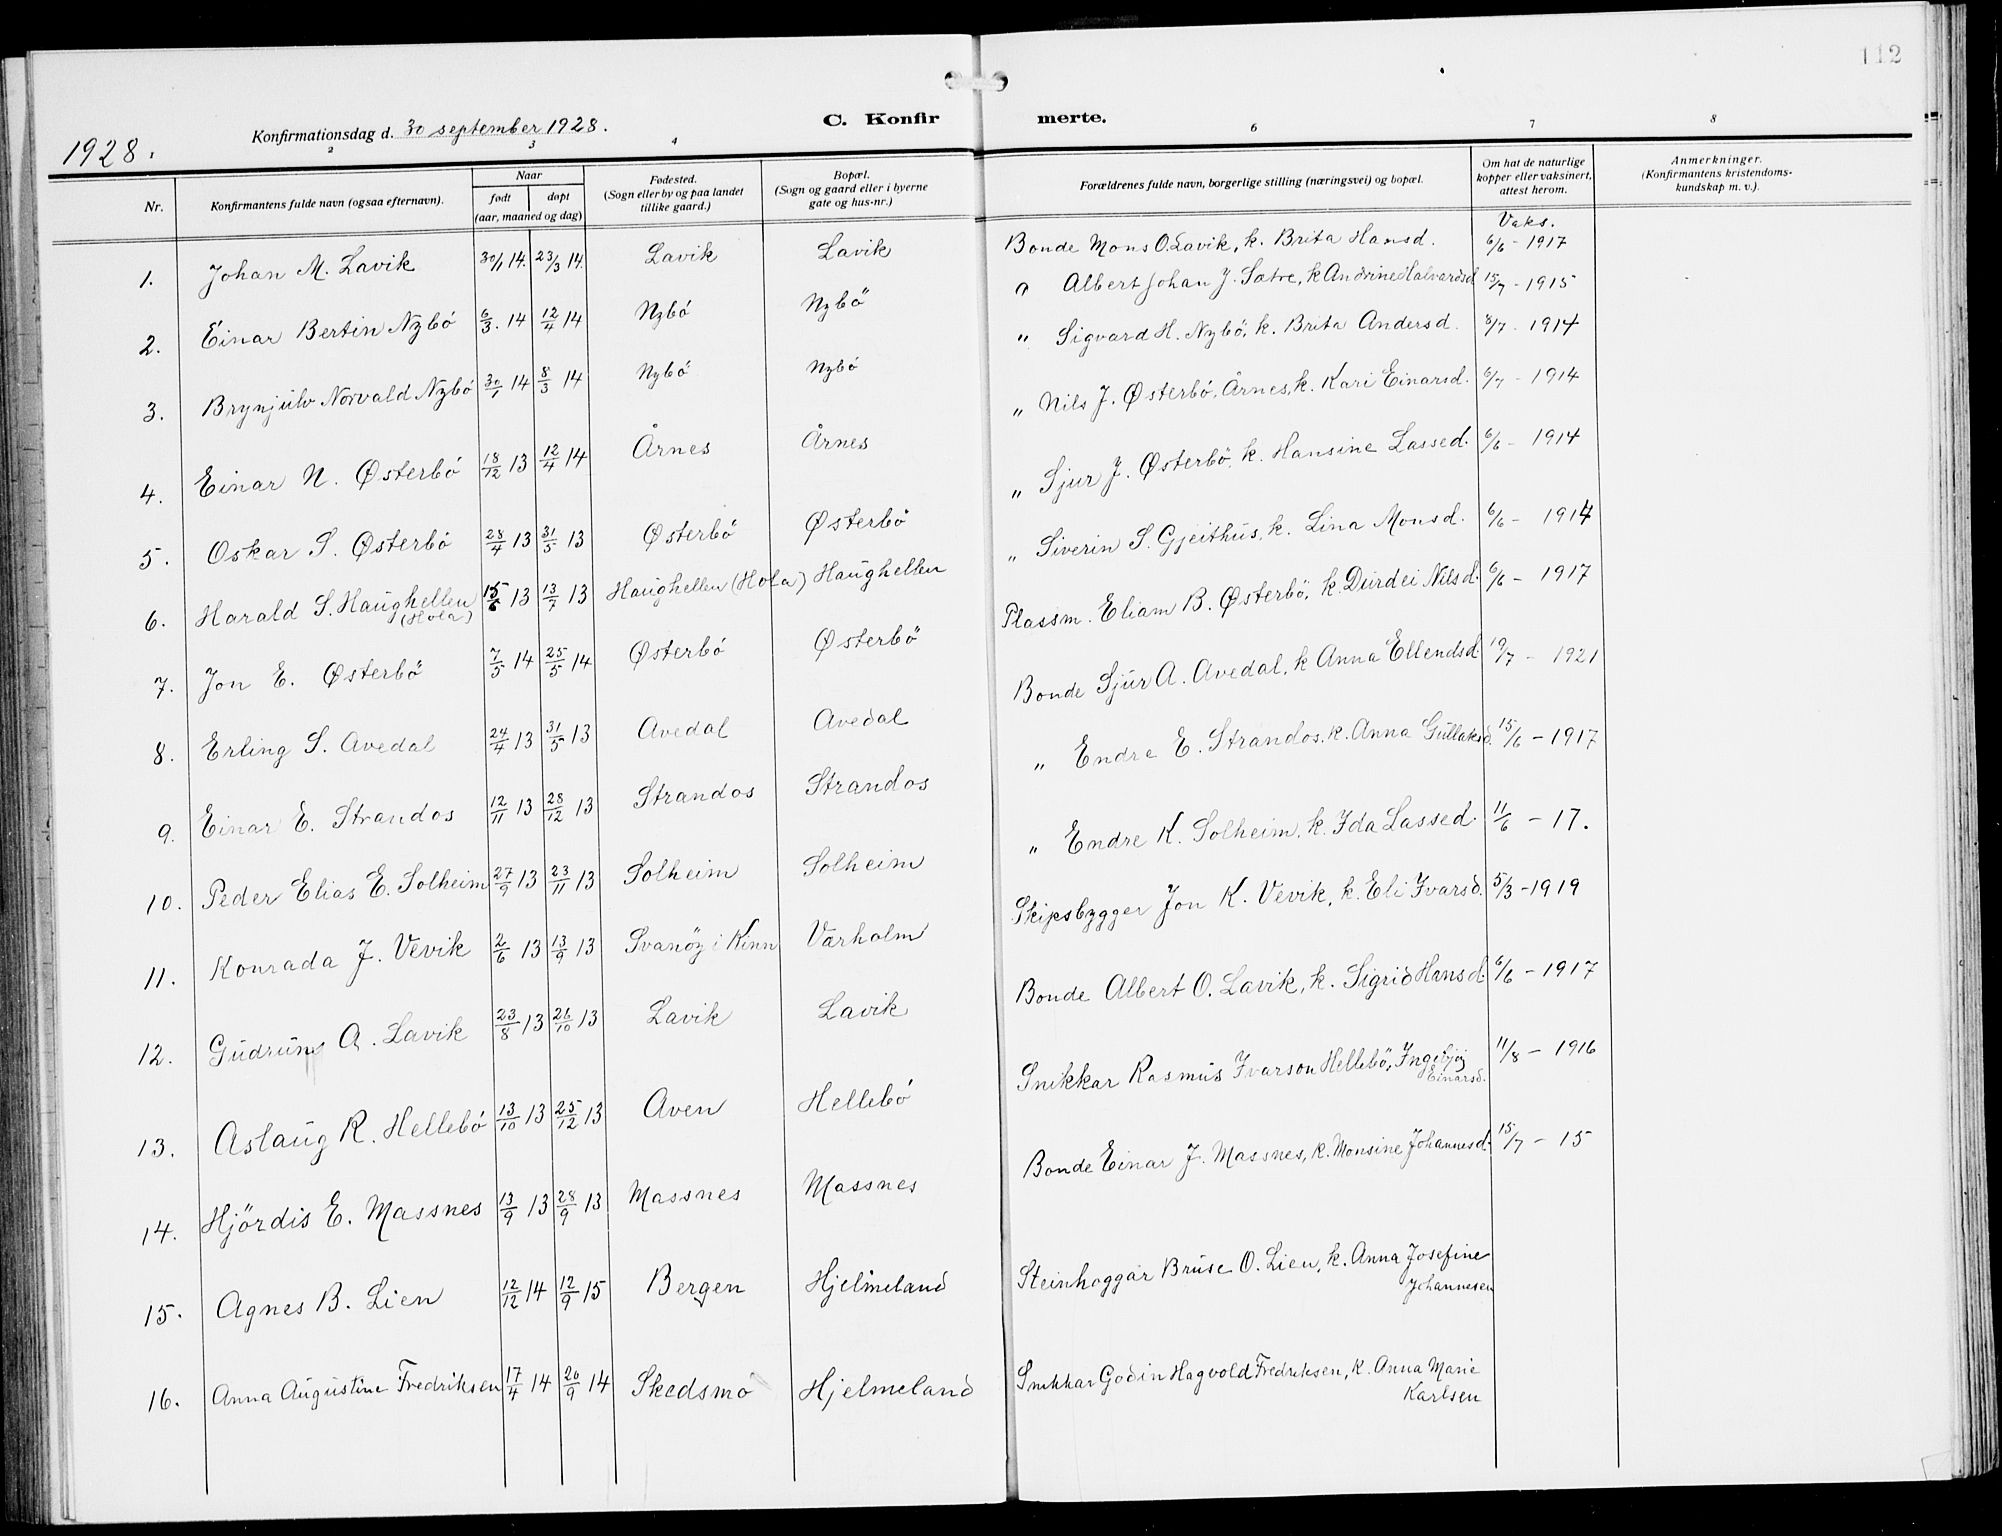 112
1928.
Konfirmationsdag d. 30 september 1928.
C. Konfirmerte.
1 2 3 4 6 7 8
Nr.
Konfirmantens fulde navn (ogsaa efternavn).
Naar
født døpt
(aar, maaned og dag)
Fødested.
(Sogn eller by og paa landet
tillike gaard.)
Bopæl.
(Sogn og gaard eller i byerne
gate og hus-nr.)
Forældrenes fulde navn, borgerlige stilling (næringsvei) og bopæl.
Om hat de naturlige
kopper eller vaksinert,
attest herom.
Anmerkninger.
(Konfirmantens kristendoms-
kundskap m. v.).
Vaks.
1. Johan M. Lavik 30/1 14. 23/3 14. Lavik Lavik Bonde Mons O. Lavik, k. Brita Hansd. 6/6 - 1917
2. Einar Bertin Nybö 6/3. 14 12/4 14 Nybö Nybö " Albert Johan J. Sætre, k Andrine Halvardsd 15/7 - 1915
3. Brynjulv Norvald Nybö 30/1 14 8/3 14 Nybö Nybö " Sigvard H. Nybö, k. Brita Andersd. 8/7 - 1914
4. Einar N. Østerbö 18/12 13 12/4 14 Årnes Årnes " Nils J. Østerbö, Årnes, k. Kari Einarsd. 6/7 - 1914
5. Oskar S. Østerbö 28/4 13 31/5 13 Østerbö Østerbö " Sjur J. Østerbö, k. Hansine Lassed. 6/6 - 1914
6. Harald S. Haughellen (Hola) 15/6 13 13/7 13 Haughellen (Hola) Haughellen " Siverin S. Gjeithus, k. Lina Monsd. 6/6 - 1914
7. Jon E. Østerbö 7/5 14 25/5 14 Østerbö Østerbö Plassm. Eliam B. Østerbö, k. Deirdei Nilsd. 6/6 - 1917
8. Erling S. Avedal 24/4 13 31/5 13 Avedal Avedal Bonde Sjur A. Avedal, k Anna Ellendsd. 19/7 - 1921
9. Einar E. Strandos 12/11 13 28/12 13 Strandos Strandos " Endre E. Strandos, k. Anna Gullaksd. 15/6 - 1917
10. Peder Elias E. Solheim 27/9 13 23/11 13 Solheim Solheim " Endre K. Solheim, k. Ida Lassed. 11/6 - 17.
11. Konrada J. Vevik 2/6 13 13/9 13 Svanöy i Kinn Varholm Skipsbygger Jon K. Vevik, k. Eli Ivarsd. 5/3 - 1919
12. Gudrun A. Lavik 23/8 13 26/10 13 Lavik Lavik Bonde Albert O. Lavik, k. Sigrid Hansd. 6/6 - 1917
13. Aslaug R. Hellebö 13/10 13 25/12 13 Aven Hellebö Snikkar Rasmus Ivarson Hellebö, Ingebjög Einarsd. 11/8 - 1916
14. Hjördis E. Massnes 13/9 13 28/9 13 Massnes Massnes Bonde Einar J. Massnes, k. Monsine Johannesd. 15/7 - 15
15. Agnes B. Lien 12/12 14 12/9 15 Bergen Hjelmeland Steinhoggar Bruse O. Lien, k. Anna Josefine Johannesen
16. Anna Augustine Fredriksen 17/4 14 20/9 14 Skedsmo Hjelmeland Snikkar Godin Hagvold Fredriksen, k. Anna Marie Karlsen